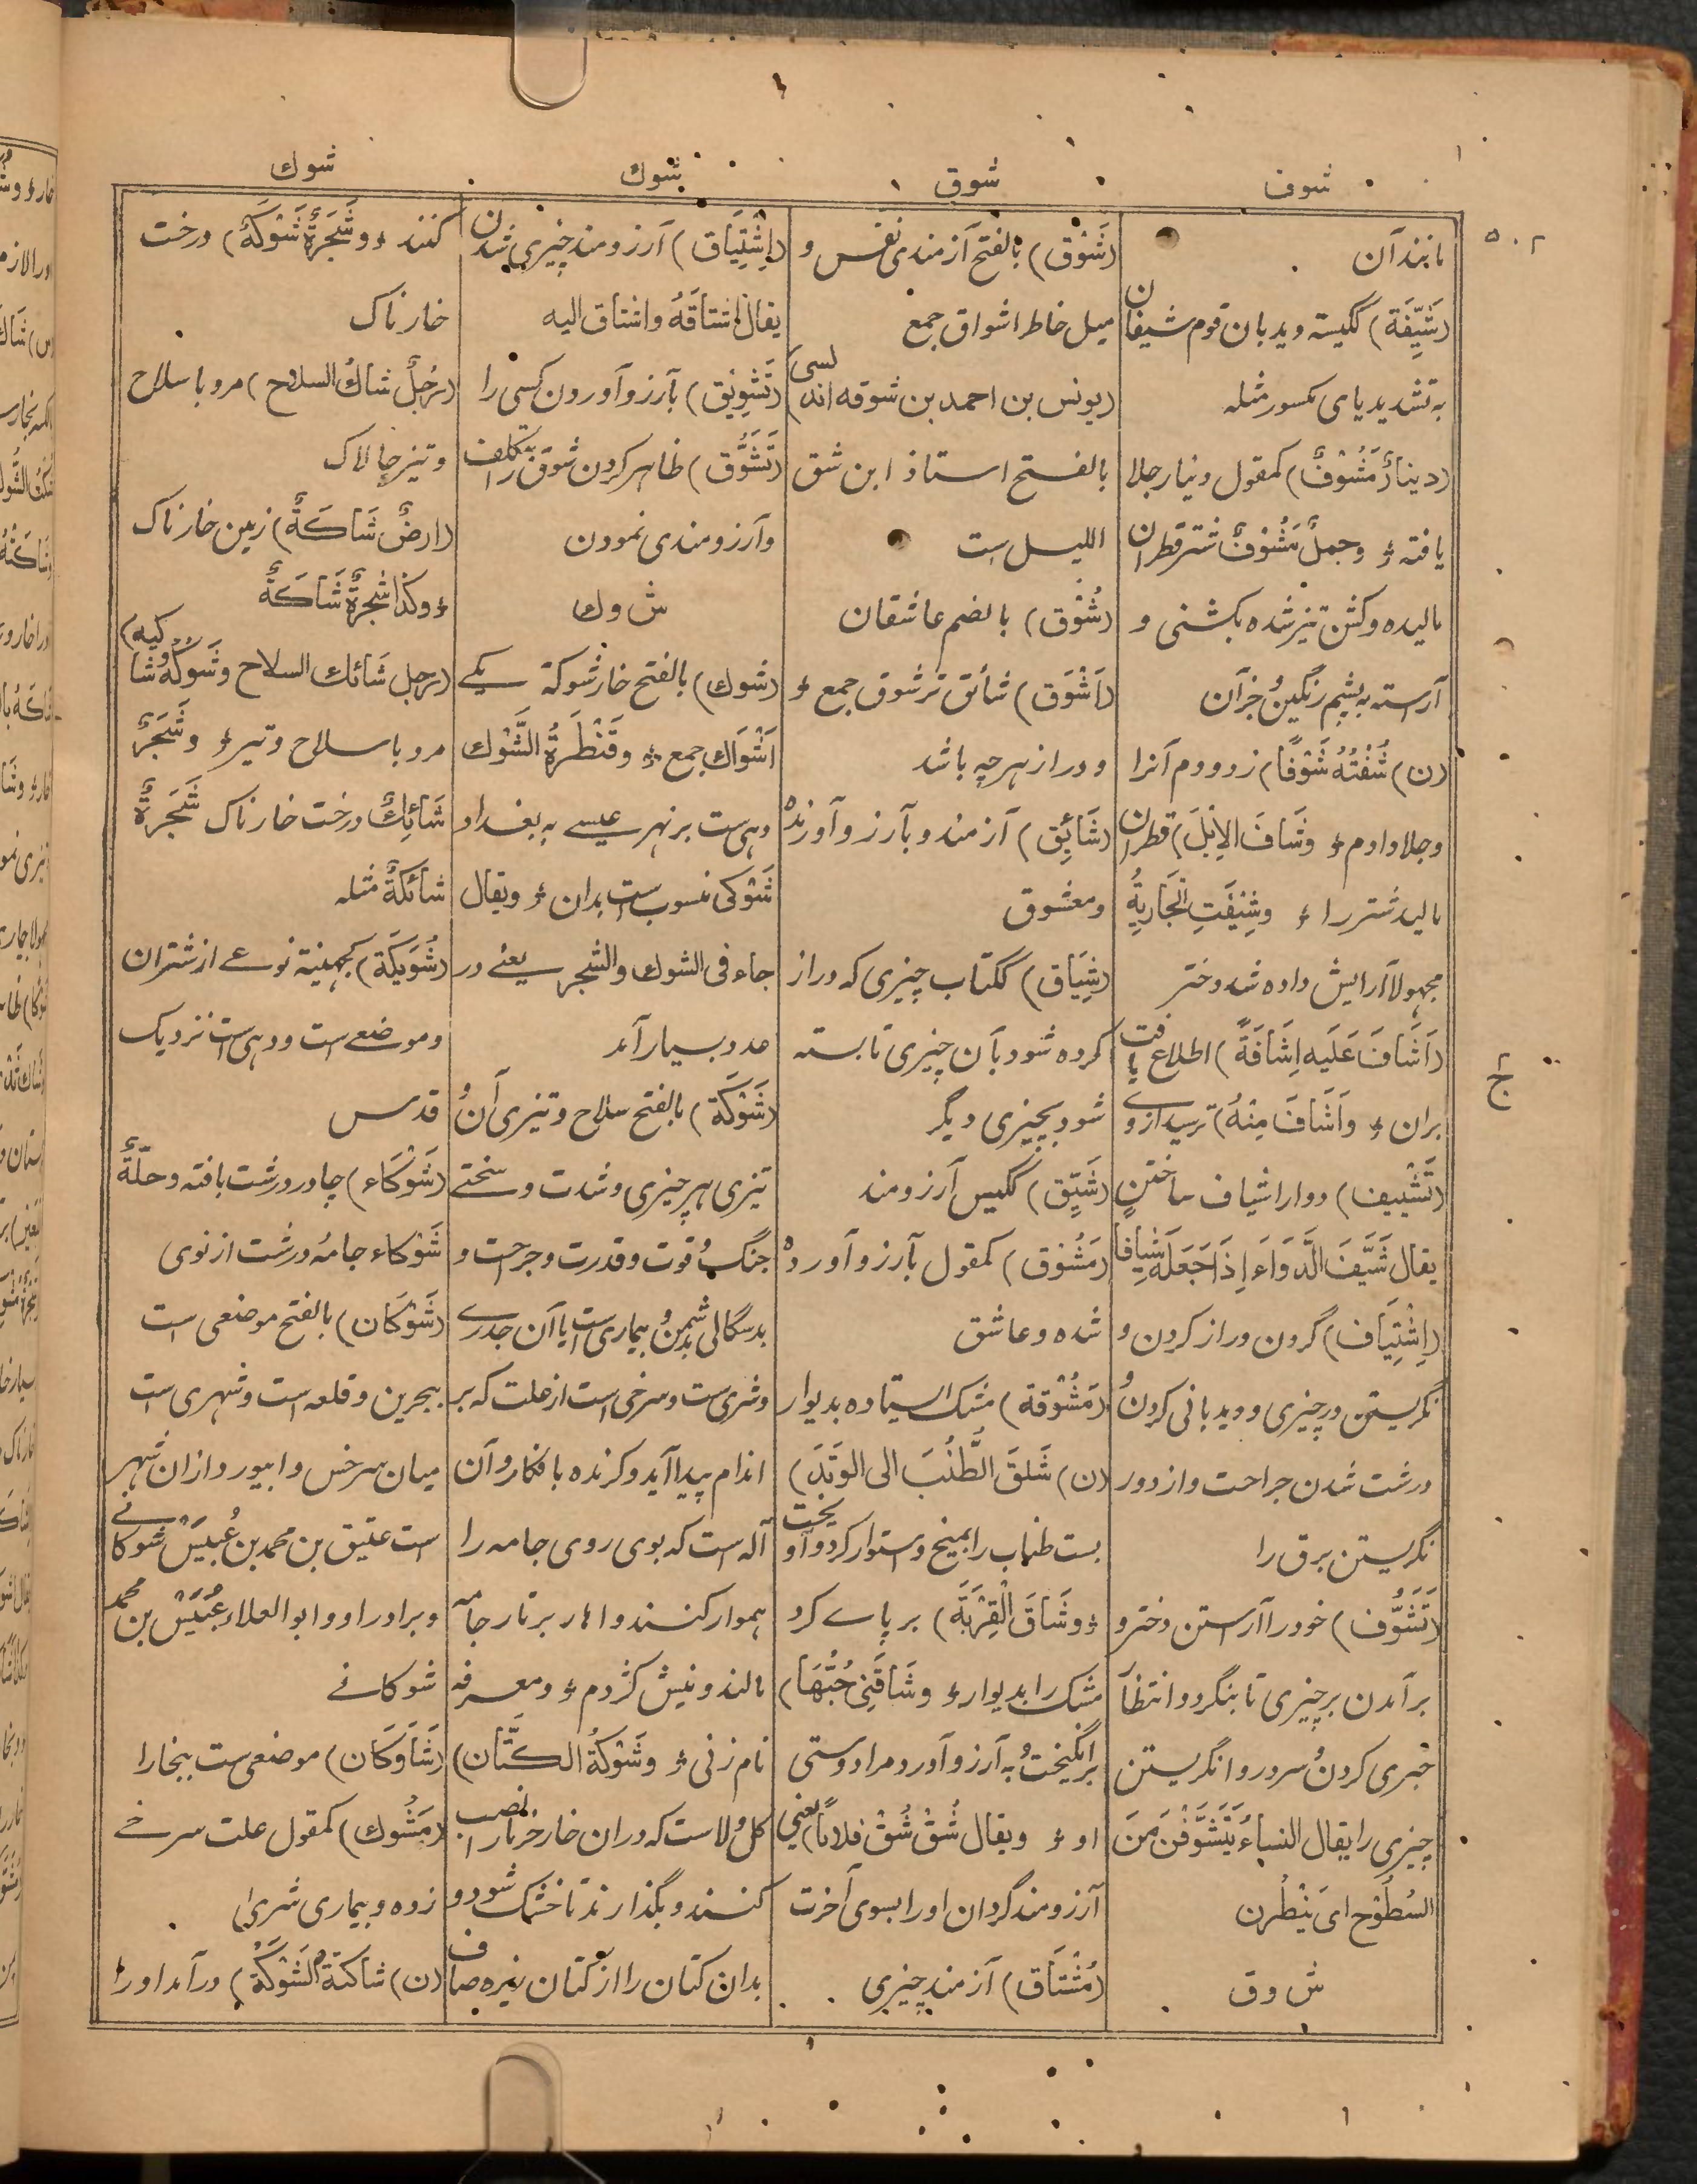 شوف
شوق
شوك
شوك
۵۰۲
مانند آن
(شَيِّفَة) ککیسة ویدبان قوم شیفان
به تشدید یای مکسور مثله
(دینارٌ مَشُوْفٌ) کمقول دینار جلا
یافته ؛ وجملٌ مَشُوْفٌ شتر قطران
مالیده وکشن تیز شده بکشنی و
آراسته به پشم رنگین و جز آن
(ن) شُفْتُهُ شَوْفًا) زدودم آنرا
وجلا دادم ؛ وشَافَ الاِبِلَ) قطران
مالید شتر را ؛ وشِيْفَتِ الْجَارِيَةُ
مجهولا آرایش داده شد دختر
(اَشَافَ عَلَيه اِشَافَةً) اطلاع یافت
بران ؛ واَشَافَ مِنْهُ) ترسید ازوے
(تَشْيِيف) دوا را شیاف ساختن
یقال شَيَّفَ الدَّوَاءَ اِذَا جَعَلَهُ شِيَافًا
(اِشْتِيَاف) گردن دراز کردن و
نگریستن در چیزی و دیدبانی کردن و
درشت شدن جراحت و از دور
نگریستن برق را
(تَشَوُّف) خود را آراستن دختر و
برآمدن بر چیزی تا بنگرد و انتظار
خبری کردن و سر دروا نگریستن
چیزی را یقال النساءُ يَتَشَوَّفْنَ مِنَ
السُطُوْح ای یَنْظُرن
ش و ق
(شَوْق) بالفتح آزمندی نفس و
میل خاطر اشواق جمع
(یونس بن احمد بن شوقه اندلسی)
بالفتح استاذ ابن شق
اللیل ست
(شُوْق) بالضم عاشقان
(اَشْوَق) شائق تر شوق جمع ؛
و دراز هر چه باشد
(شَائِق) آزمند و بآرزو آورنده
ومعشوق
(شِيَاق) ککتاب چیزی که دراز
کرده شود بآن چیزی تا بسته
شود بچیزی دیگر
(شَيِّق) ککیس آرزومند
(مَشُوْق) کمقول بآرزو آورده
شده وعاشق
(مَشُوْقة) مشک ایستاده بدیوار
(ن) شَاقَ الطُّنُبَ الی الوَتَدِ)
بست طناب را بمیخ و استوار کرد و آویخت
؛ وشَاقَ الْقِرْبَةَ) بر پاے کرد
مشک را بدیوار ؛ وشَاقَنِي حُبُّهَا)
برانگیخت و به آرزو آورد مرا دوستی
او ؛ ویقال شُقْ شُقْ فلاناً یعنی
آرزومند گردان او را بسوی آخرت
(مُشْتَاق) آزمند چیزی
(اِشْتِيَاق) آرزومند چیزی شدن
یقال اشتاقَهُ واشتاق الیه
(تَشْوِيْق) بآرزو آوردن کسی را
(تَشَوُّق) ظاهر کردن شوق را بتکلف
وآرزومندی نمودن
ش و ك
(شوك) بالفتح خار شوکة یکے
اَشْوَاك جمع ؛ وقَنْطَرَةُ الشَّوْك
دهی ست بر نهر عیسے به بغداد
شَوْکی منسوب ست بدان ؛ ویقال
جاء فی الشوك والشجر یعنے در
عدد بسیار آمد
(شَوْكَة) بالفتح سلاح وتیزی آن و
تیزی هر چیزی وشدت وسختے
جنگ و قوت وقدرت وجرحت و
بدسگالی دشمن و بیماری ست یا آن جدرے
وشری ست وسرخی است از علت که بر
اندام پیدا آید وکزنده بافکار وآن
آله است که بوی روی جامه را
هموار کنند واهار بر تار جامه
مالند ونیش کژدم ؛ ومعرفه
نام زنی ؛ وشَوْكَةُ الكَتَّان)
کل ولا ست که دران خار خرما را نصب
کنند وبگذارند تا خشک شود و
بدان کتان را از کتان نیره صاف
کنند ؛ وشَجَرَةٌ شَوْكَةٌ) درخت
خارناک
(رَجُلٌ شاكُ السلاح) مرد باسلاح
وتیز چالاک
(ارضٌ شَاكَةٌ) زمین خارناک
؛ وکذا شجرةٌ شَاكَةٌ
(رجل شَائك السلاح وشَوْكُهُ شاکیه)
مرد باسلاح وتیز ؛ وشَجَرٌ
شَائِكٌ درخت خارناک شَجَرَةٌ
شائكةٌ مثله
(شُوَيْكَة) کجهینة نوعے از شتران
وموضعے ست ودهی ست نزدیک
قدس
(شَوْكَاء) چادر درشت بافته وحلّةٌ
شَوْكاء جامه درشت از نوی
(شَوْكَان) بالفتح موضعی است
ببحرین وقلعه است وشهری است
میان سرخس وابیورد ازان شهر
است عتیق بن محمد بن عُبَيْس شوکانے
وبرادر او وابو العلاء عُبَيْس بن محمد
شوکانے
(شَاوَكَان) موضعی ست ببخارا
(مَشُوك) کمقول علت سرخے
زده وبیماری شری
(ن) شاکتهُ الشَوْكَةُ) درآمد او را
ج